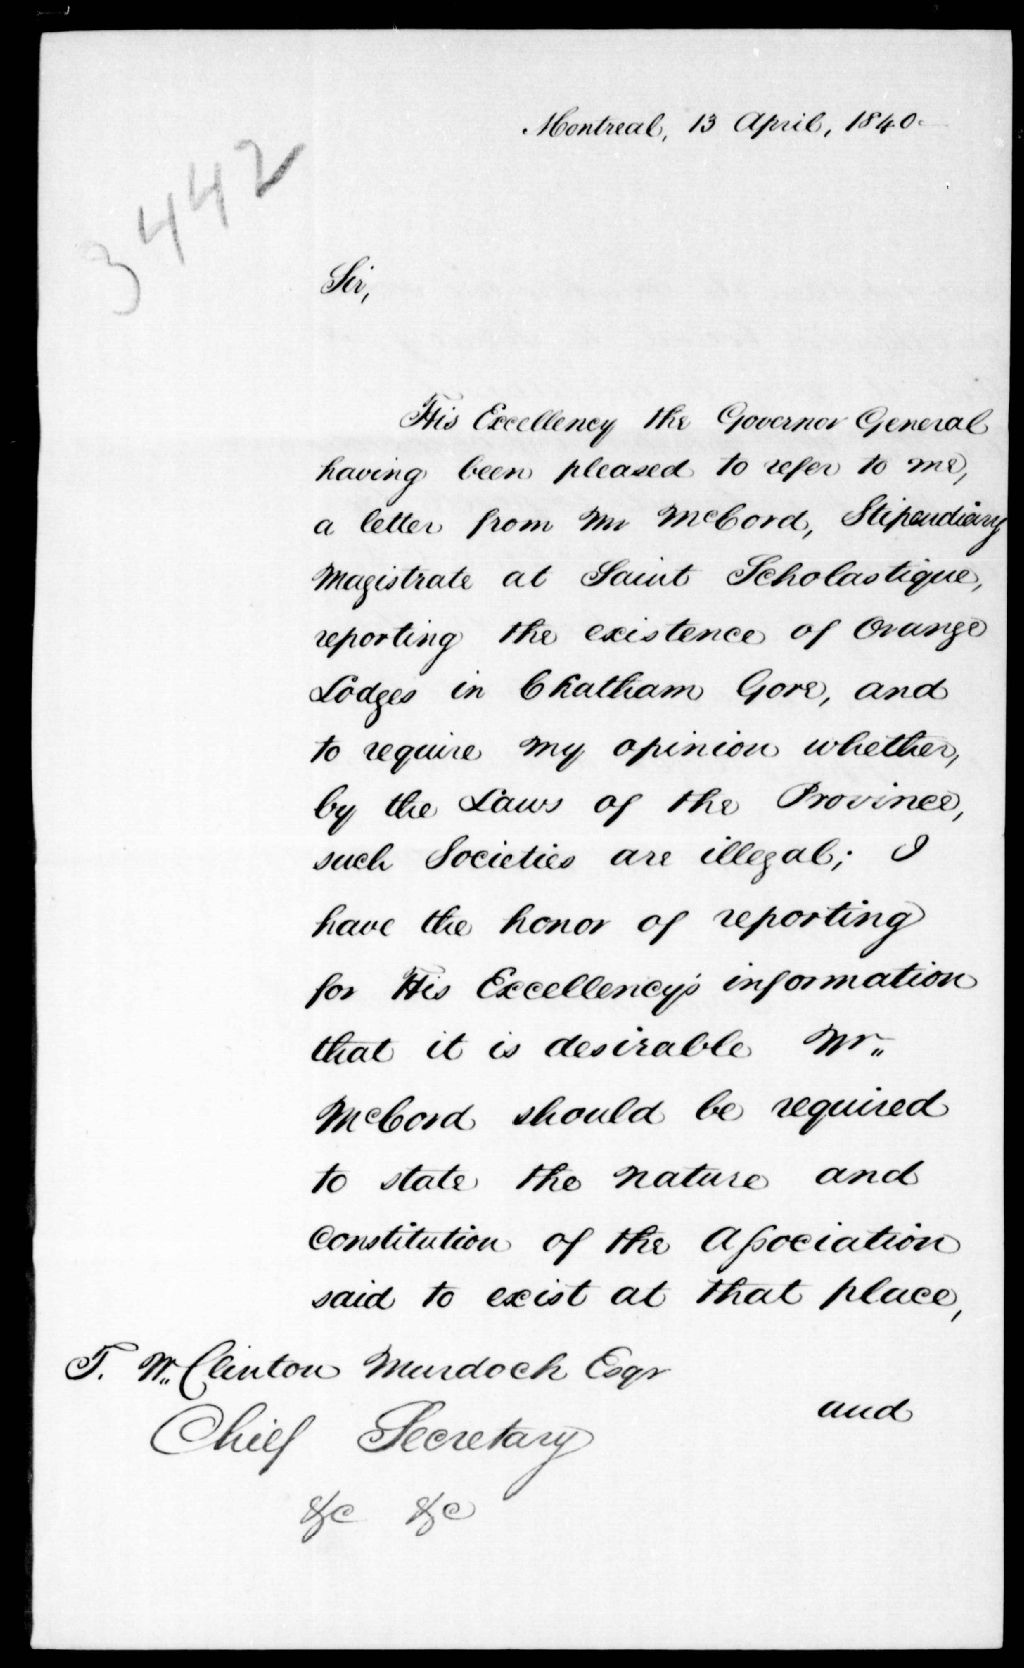 Montreal, 13 April, 1840.
3442
Sir,
His Excellency the Governor General
having been pleased to refer to me,
a letter from Mr McCord, Stipendiary
Magistrate at Saint Scholastique,
reporting the existence of Orange
Lodges in Chatham Gore, and
to require my opinion whether,
by the Laws of the Province,
such Societies are illegal; I
have the honor of reporting
for His Excellency's information
that it is desirable Mr.
McCord should be required
to state the nature and
Constitution of the Aſsociation
said to exist at that place,
T. W. Clinton Murdoch Esqr
and
Chief Secretary
&c &c